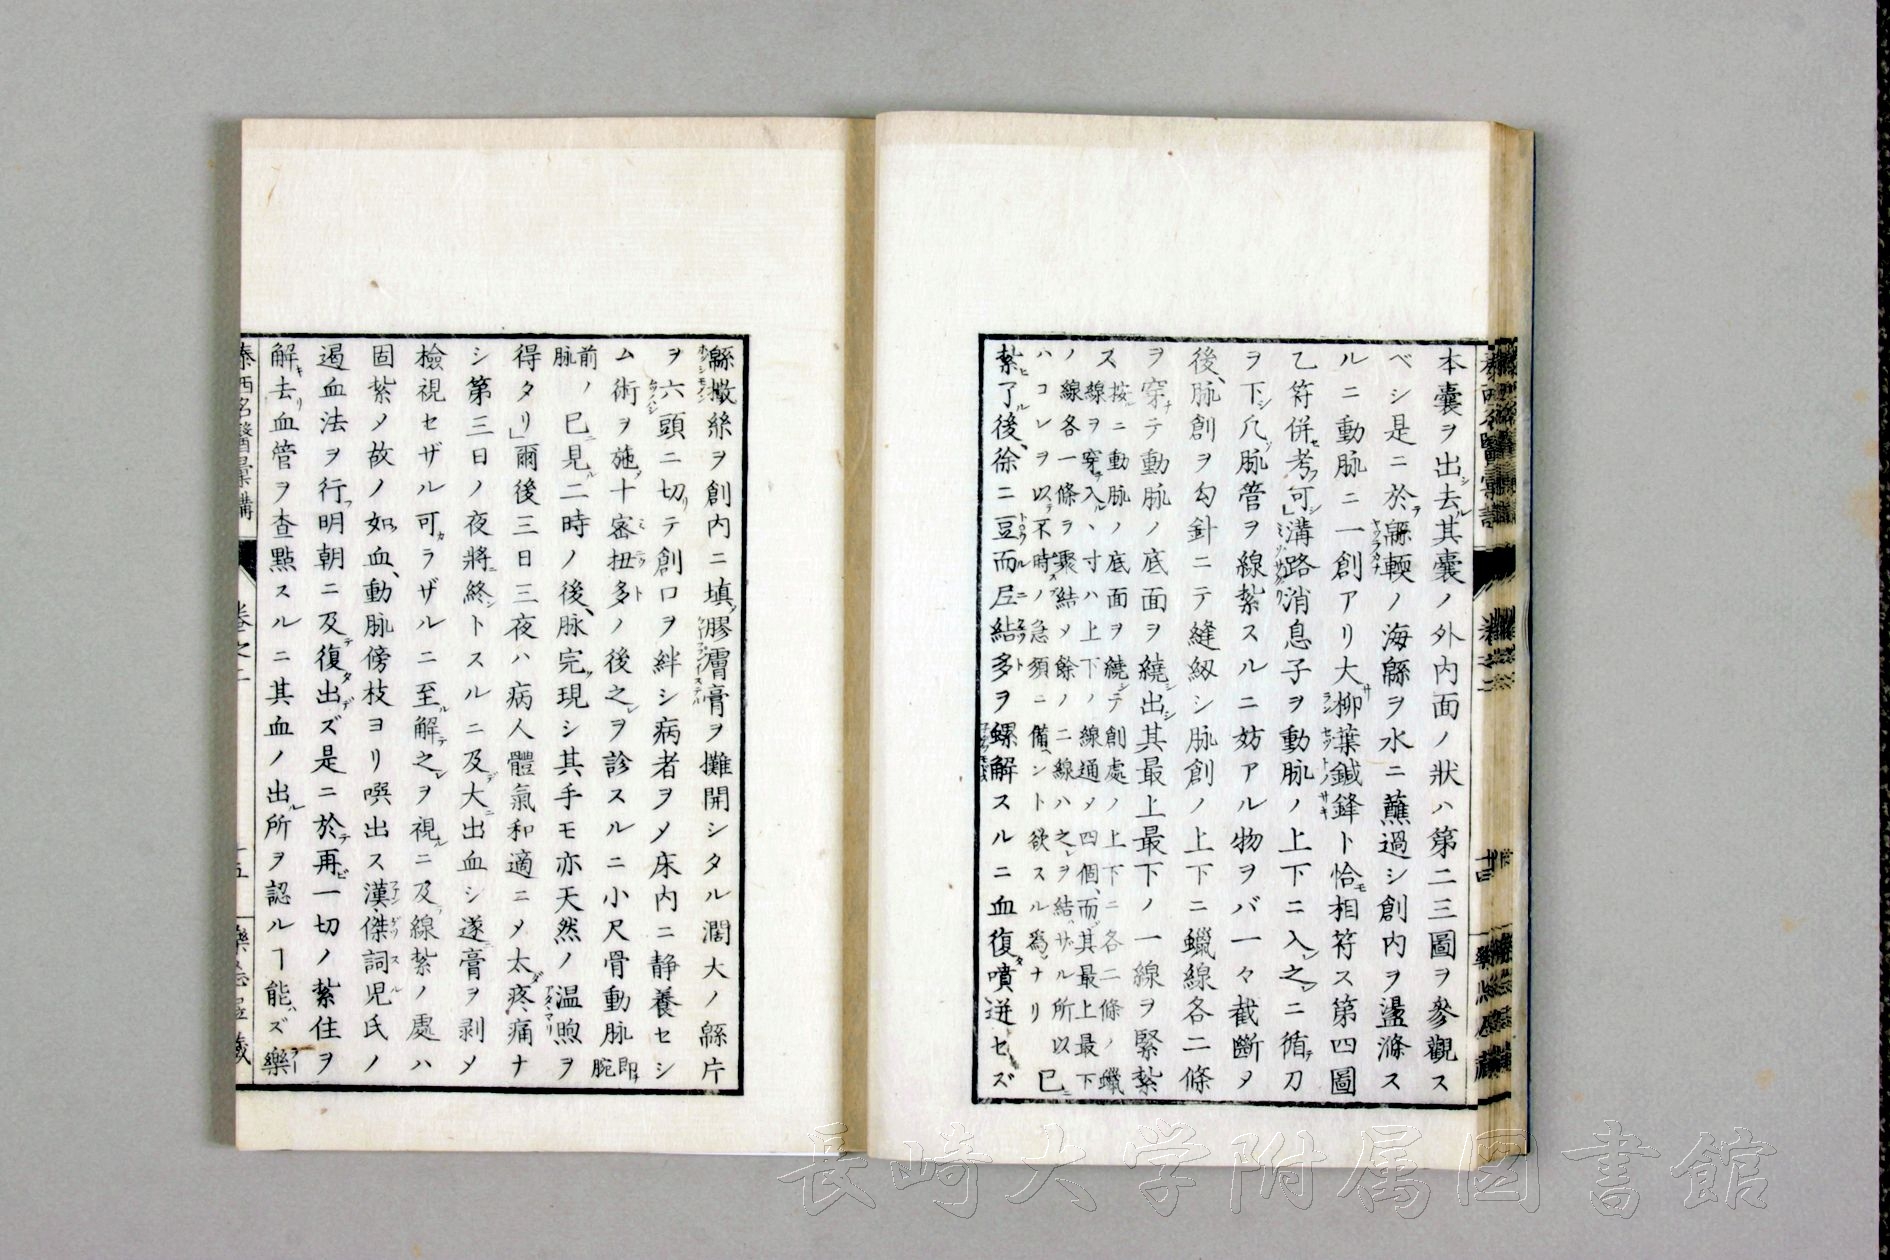 本囊ヲ出去其囊ノ外内面ノ狀ハ第二三圖ヲ參觀ス
ベシ是ニ於緜輭ノ海緜ヲ水ニ蘸過シ創内ヲ盪滌ス
ルニ動脉ニ一創アリ大柳葉鍼鋒ト恰相符ス第四圖
乙符併考可溝路消息子ヲ動脉ノ上下ニ入之ニ循刀
ヲ下凡脉管ヲ線紮スルニ妨アル物ヲバ一々截斷メ
後脉創ヲ勾針ニテ縫綴シ脉創ノ上下ニ蠟線各二條
ヲ穿テ動脉ノ底面ヲ繞出其最上最下ノ一線ヲ緊紮
ス按ニ動脉ノ底面ヲ繞テ創處ノ上下ニ各二條ノ蠟
線ヲ穿入ル寸ハ上下ノ線通メ四個而其最上最下
ノ線各一條ヲ聚結メ餘ノ二線ハ之ヲ結ザル所以
ハコレヲ以不時ノ急須ニ備ント欲スル爲ナリ 已
紮了後徐ニ豆而尼結多ヲ螺解スルニ血復噴迸セズ
泰西名醫彙講 卷之二 十四 樂志居藏
緜撒絲ヲ創内ニ填膠膚膏ヲ攤開シタル濶大ノ緜片
ヲ六頭ニ切テ創口ヲ絆シ病者ヲメ床内ニ静養セシ
ム術ヲ施十密扭多ノ後之ヲ診スルニ小尺骨動脉即腕
前ノ脉已見二時ノ後脉完現シ其手モ亦天然ノ温煦ヲ
得タリ」爾後三日三夜ハ病人體氣和適ニメ太疼痛ナ
シ第三日ノ夜將終トスルニ及大出血シ遂膏ヲ剥メ
檢視セザル可ラザルニ至解之ヲ視ニ及線紮ノ處ハ
固紮メ故ノ如血動脉傍枝ヨリ噀出ス漢傑詞児氏ノ
遏血法ヲ行明朝ニ及復出ズ是ニ於再一切ノ紮住ヲ
解去血管ヲ査點スルニ其血ノ出所ヲ認ルヿ能ズ樂
泰西名醫彙講 卷之二 十五 樂志居藏
長崎大学附属図書館